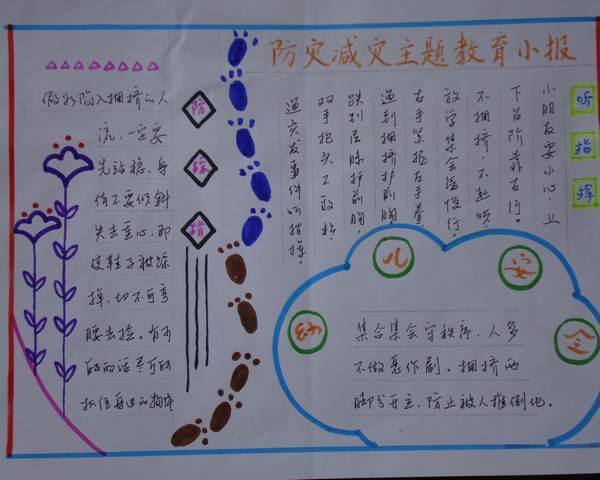 防灾减灾主题教育小报
假如陷入拥挤的人
流，一定要
先站稳，身
体不要倾斜
失去重心，即
使鞋子被踩
掉，切不可弯
腰去捡。有可
能的话尽可能
抓住身边的物体
防
踩
踏
听指挥
小朋友要小心，上
下台阶靠右行。
不拥挤，不起哄，
放学集会缓慢行。
右手紧握左手拳，
遇到拥挤护前胸，
跌到屈膝护前胸，
双手抱头不敢松，
遇突发事件听指挥。
幼儿安全
集合集会守秩序，人多
不做恶作剧。拥挤两
脚分开立，防止被人推倒地。